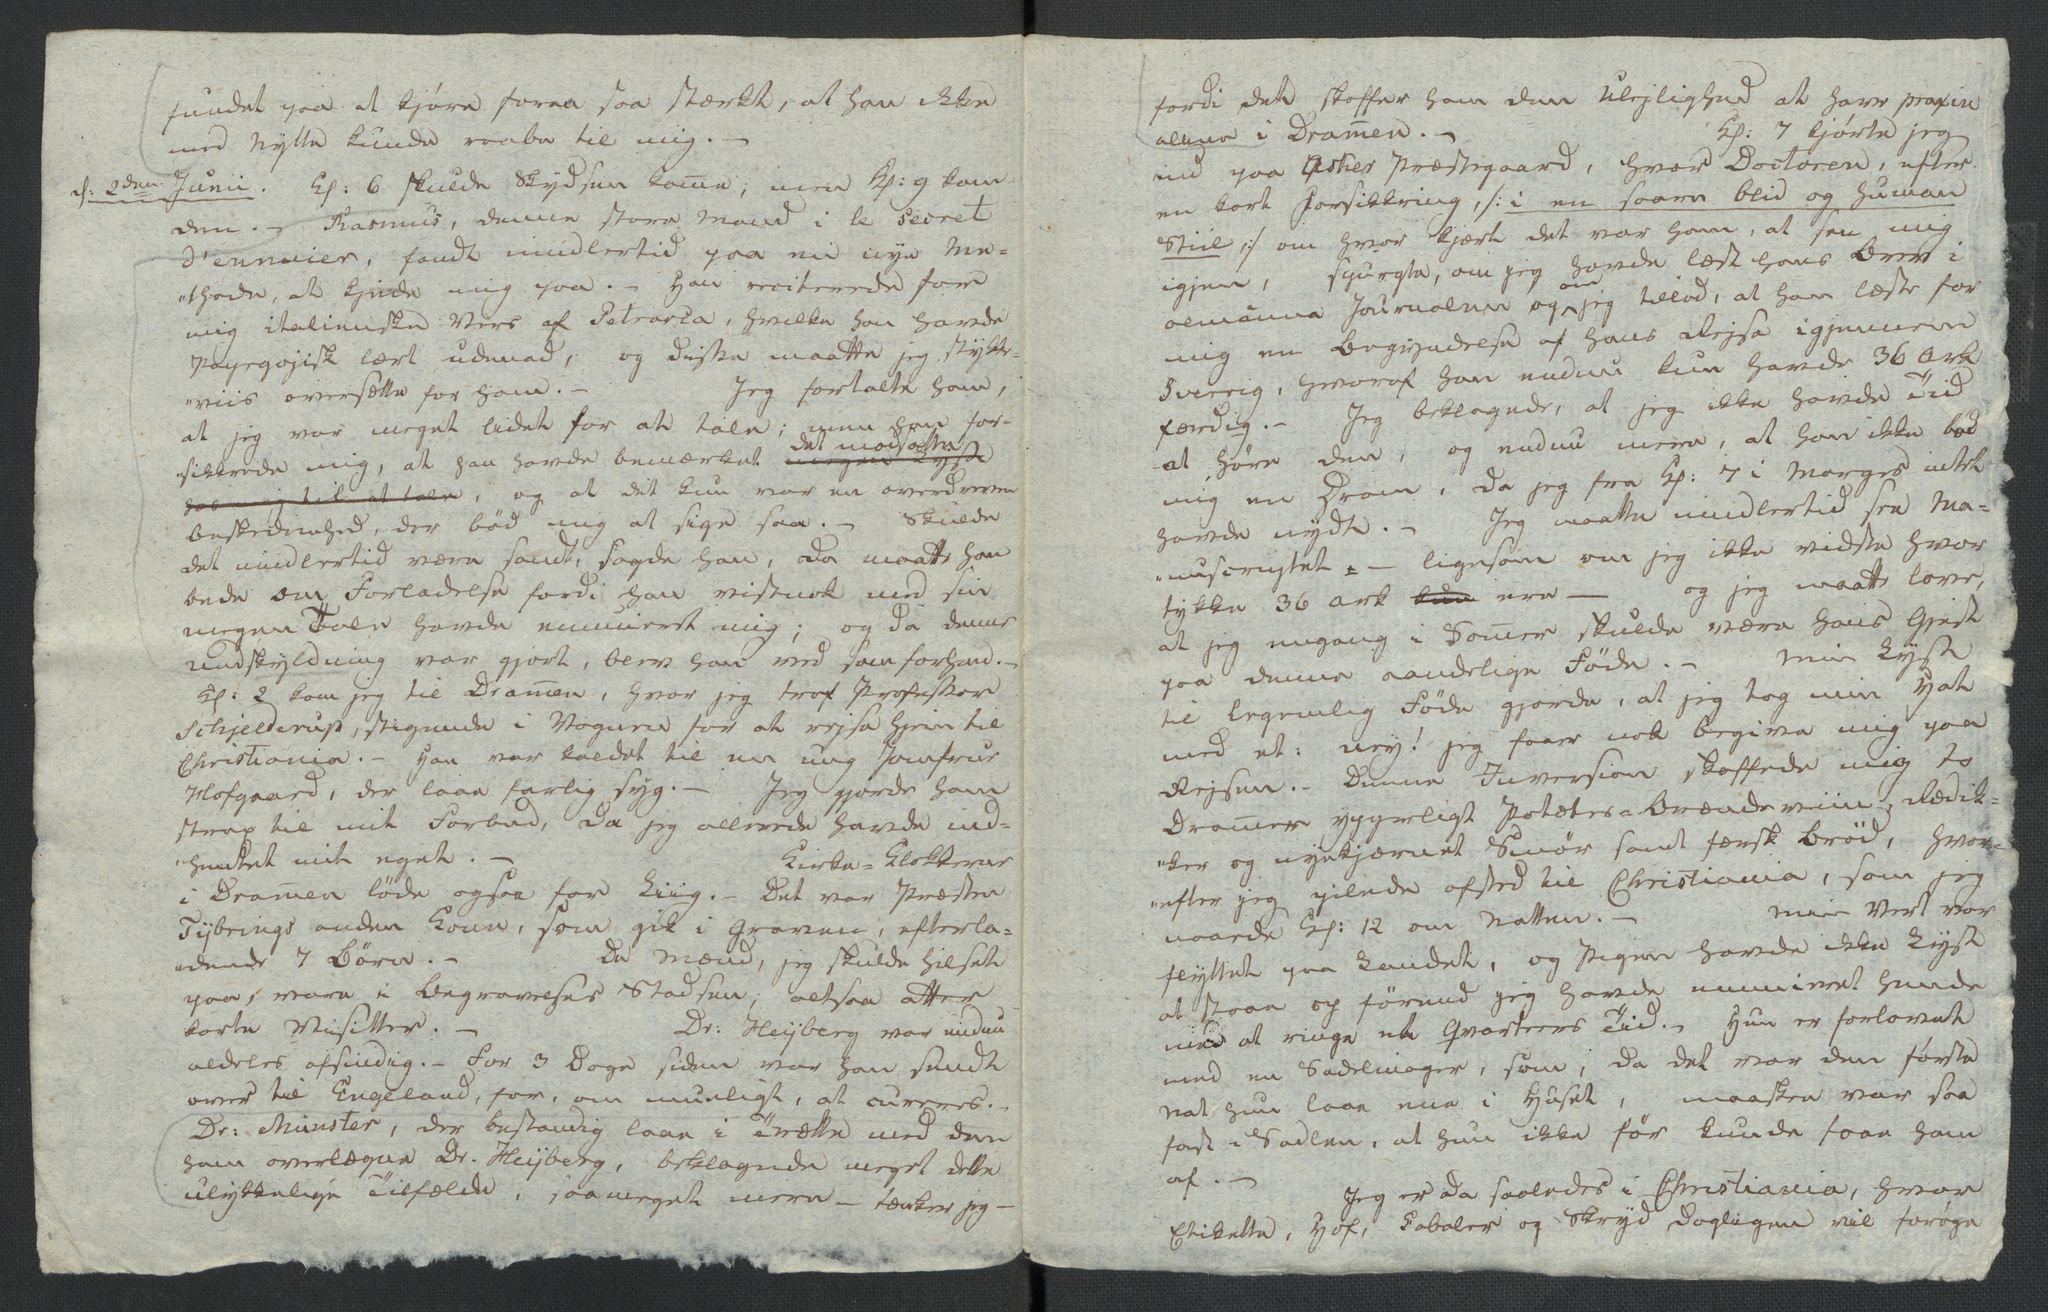 fundet paa at kjøre foraa saa stærkt, at han ikke
med Nytte kunde raabe til mig. –
d: 2den Junii. Kl: 6 skulde Skydsen komme; men Kl: 9 kom
den. – Rasmus, denne store Mand i le secret
d'ennuier, fandt imidlertid paa en nye Me=
"thode, at kjede mig paa. – Han reciterede for
mig italienske Vers af Petrarca, hvilke han havde
Papegojisk lært udenad, og disse maatte jeg stykke=
"viis oversætte for ham. – Jeg fortalte ham,
at jeg var meget lidet for at tale; men han for=
"sikkrede mig, at han havde bemærket det modsatte megen Lyst
hos mig til at tale, og at det kun var en overdreven
beskedenhed, der bød mig at sige saa. – Skulde
det imidlertid være sandt, sagde han, da maatte han
bede om Forladelse fordi han vistnok med sin
megen Tale havde ennuieret mig; og da denne
undskyldning var gjort, blev han ved som forhend. –
Kl: 2 kom jeg til Dramen, hvor jeg traf Professor
Schjelderup, stigende i Vognen for at rejse hjem til
Christiania. – Han var kaldet til en ung Jomfrue
Hofgaard, der laae farlig syg. – Jeg gjorde ham
strax til mit Forbud, da jeg allerede havde ind=
"hentet mit eget. – Kirke=Klokkerne
i Dramen löde ogsaa for Liig. – Det var Præsten
Tybrings anden Kone, som gik i Graven, efterla=
"dende 7 Börn. – De Mænd, jeg skulde hilset
paa, vare i Begravelses Stadsen; altsaa atter
korte Visitter. – Dr: Heyberg var endnu
aldeles afsindig. – For 3 Dage siden var han sendt
over til Engeland, for, om mueligt, at cureres. –
Dr: Münster, der bestandig laae i Trætte med den
ham overlegne Dr. Heyberg, beklagede meget dette
ulykkelige Tilfælde, saameget mere – tænker jeg –
fordi det skaffer ham den Ulejlighed at have praxin
alene i Dramen. – Kl: 7 kjørte jeg
ind paa Asker Præstegaard, hvor Doctoren, efter
en kort Forsikkring, /: i en saare blid og human
Stiil :/ om hvor kjært det var ham, at see mig
igjen, spurgte, om jeg havde læst hans Brev i
almänna Journalen og om jeg tillod, at han læste for
mig en Begyndelse af hans Rejse igjennem
Sverrig, hvoraf han endnu kun havde 36 Ark
færdig. – Jeg beklagede, at jeg ikke havde Tid
at höre den, og endnu mere, at han ikke bød
mig en Dram, da jeg fra Kl: 7 i Morges intet
havde nydt. – Jeg maatte imidlertid see Ma=
"nuscriptet – ligesom om jeg ikke vidste hvor
tykke 36 Ark kun ere – og jeg maatte love,
at jeg engang i Sommer skulde være hans Gjest
paa denne aandelige Föde. – Min Lyst
til legemlig Föde gjorde, at jeg tog min Hat
med et: ney! jeg faaer nok begive mig paa
Rejsen. – Denne Inversion skaffede mig to
Drammer ypperligt Potætes=Brændeviin, Rædik=
"ker og nyekjærnet Smör samt færsk Bröd, hvor=
"efter jeg pilede afsted til Christiania, som jeg
naaede Kl: 12 om Natten. – Min Vert var
flyttet paa Landet, og Pigen havde ikke Lyst
at staae op förend jeg havde ennuieret hende
med at ringe et Qvarteers Tid. – Hun er forlovet
med en Sadelmager, som, da det var den første
Nat hun laae ene i Huset, maaskee var saa
fast i Sadlen, at hun ikke för kunde faae ham
af. –
Jeg er da saaledes i Christiania, hvor
Etikette, Hof, Cabaler og Skryd dagligen vil forøge